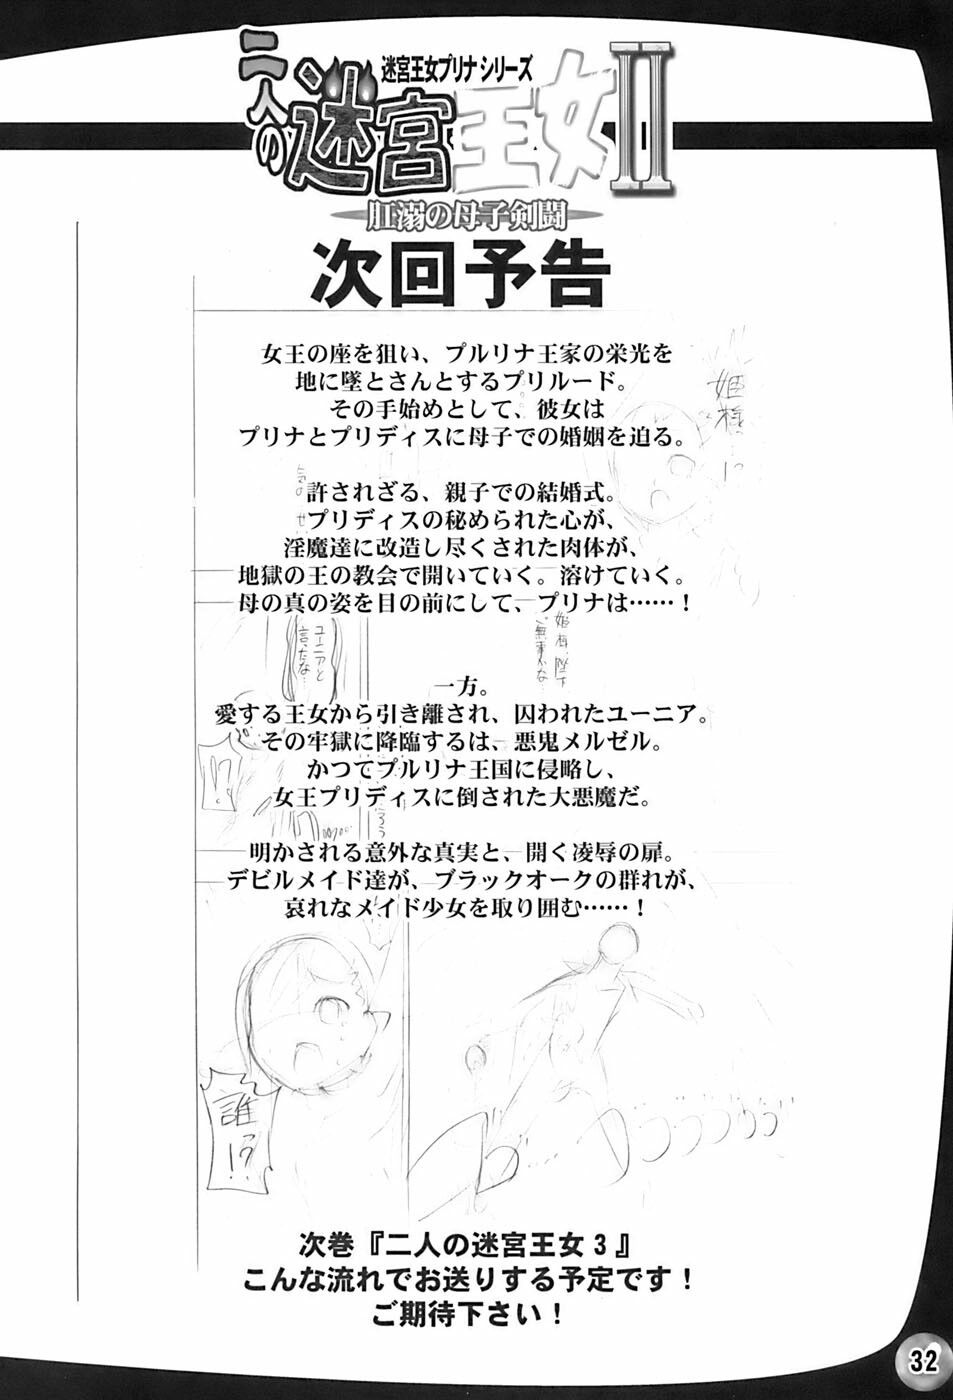 迷宮王女プリナシリーズ
二人の迷宮王女II
肛溺の母子剣闘
次回予告
女王の座を狙い、プルリナ王家の栄光を
地に墜とさんとするプリルード。
その手始めとして、彼女は
プリナとプリディスに母子での婚姻を迫る。
許されざる、親子での結婚式。
プリディスの秘められた心が、
淫魔達に改造し尽くされた肉体が、
地獄の王の教会で開いていく。溶けていく。
母の真の姿を目の前にして、プリナは……！
一方。
愛する王女から引き離され、囚われたユーニア。
その牢獄に降臨するは、悪鬼メルゼル。
かつてプルリナ王国に侵略し、
女王プリディスに倒された大悪魔だ。
明かされる意外な真実と、開く凌辱の扉。
デビルメイド達が、ブラックオークの群れが、
哀れなメイド少女を取り囲む……！
姫様…!?
ユーニアと
言ったな…
姫様、陛下
ご無事かな…
!?
誰!?
次巻『二人の迷宮王女３』
こんな流れでお送りする予定です！
ご期待下さい！
32